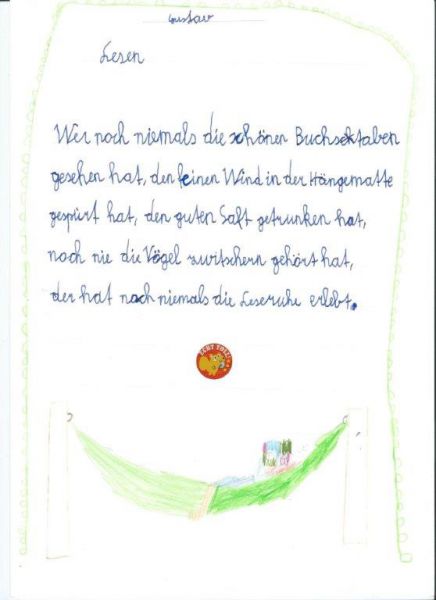 Gustav
Lesen
Wer noch niemals die schönen Buchsktaben
gesehen hat, den feinen Wind in der Hängematte
gespürt hat, den guten Saft getrunken hat,
noch nie die Vögel zwitschern gehört hat,
der hat noch niemals die Leseruhe erlebt.
ECHT TOLL!